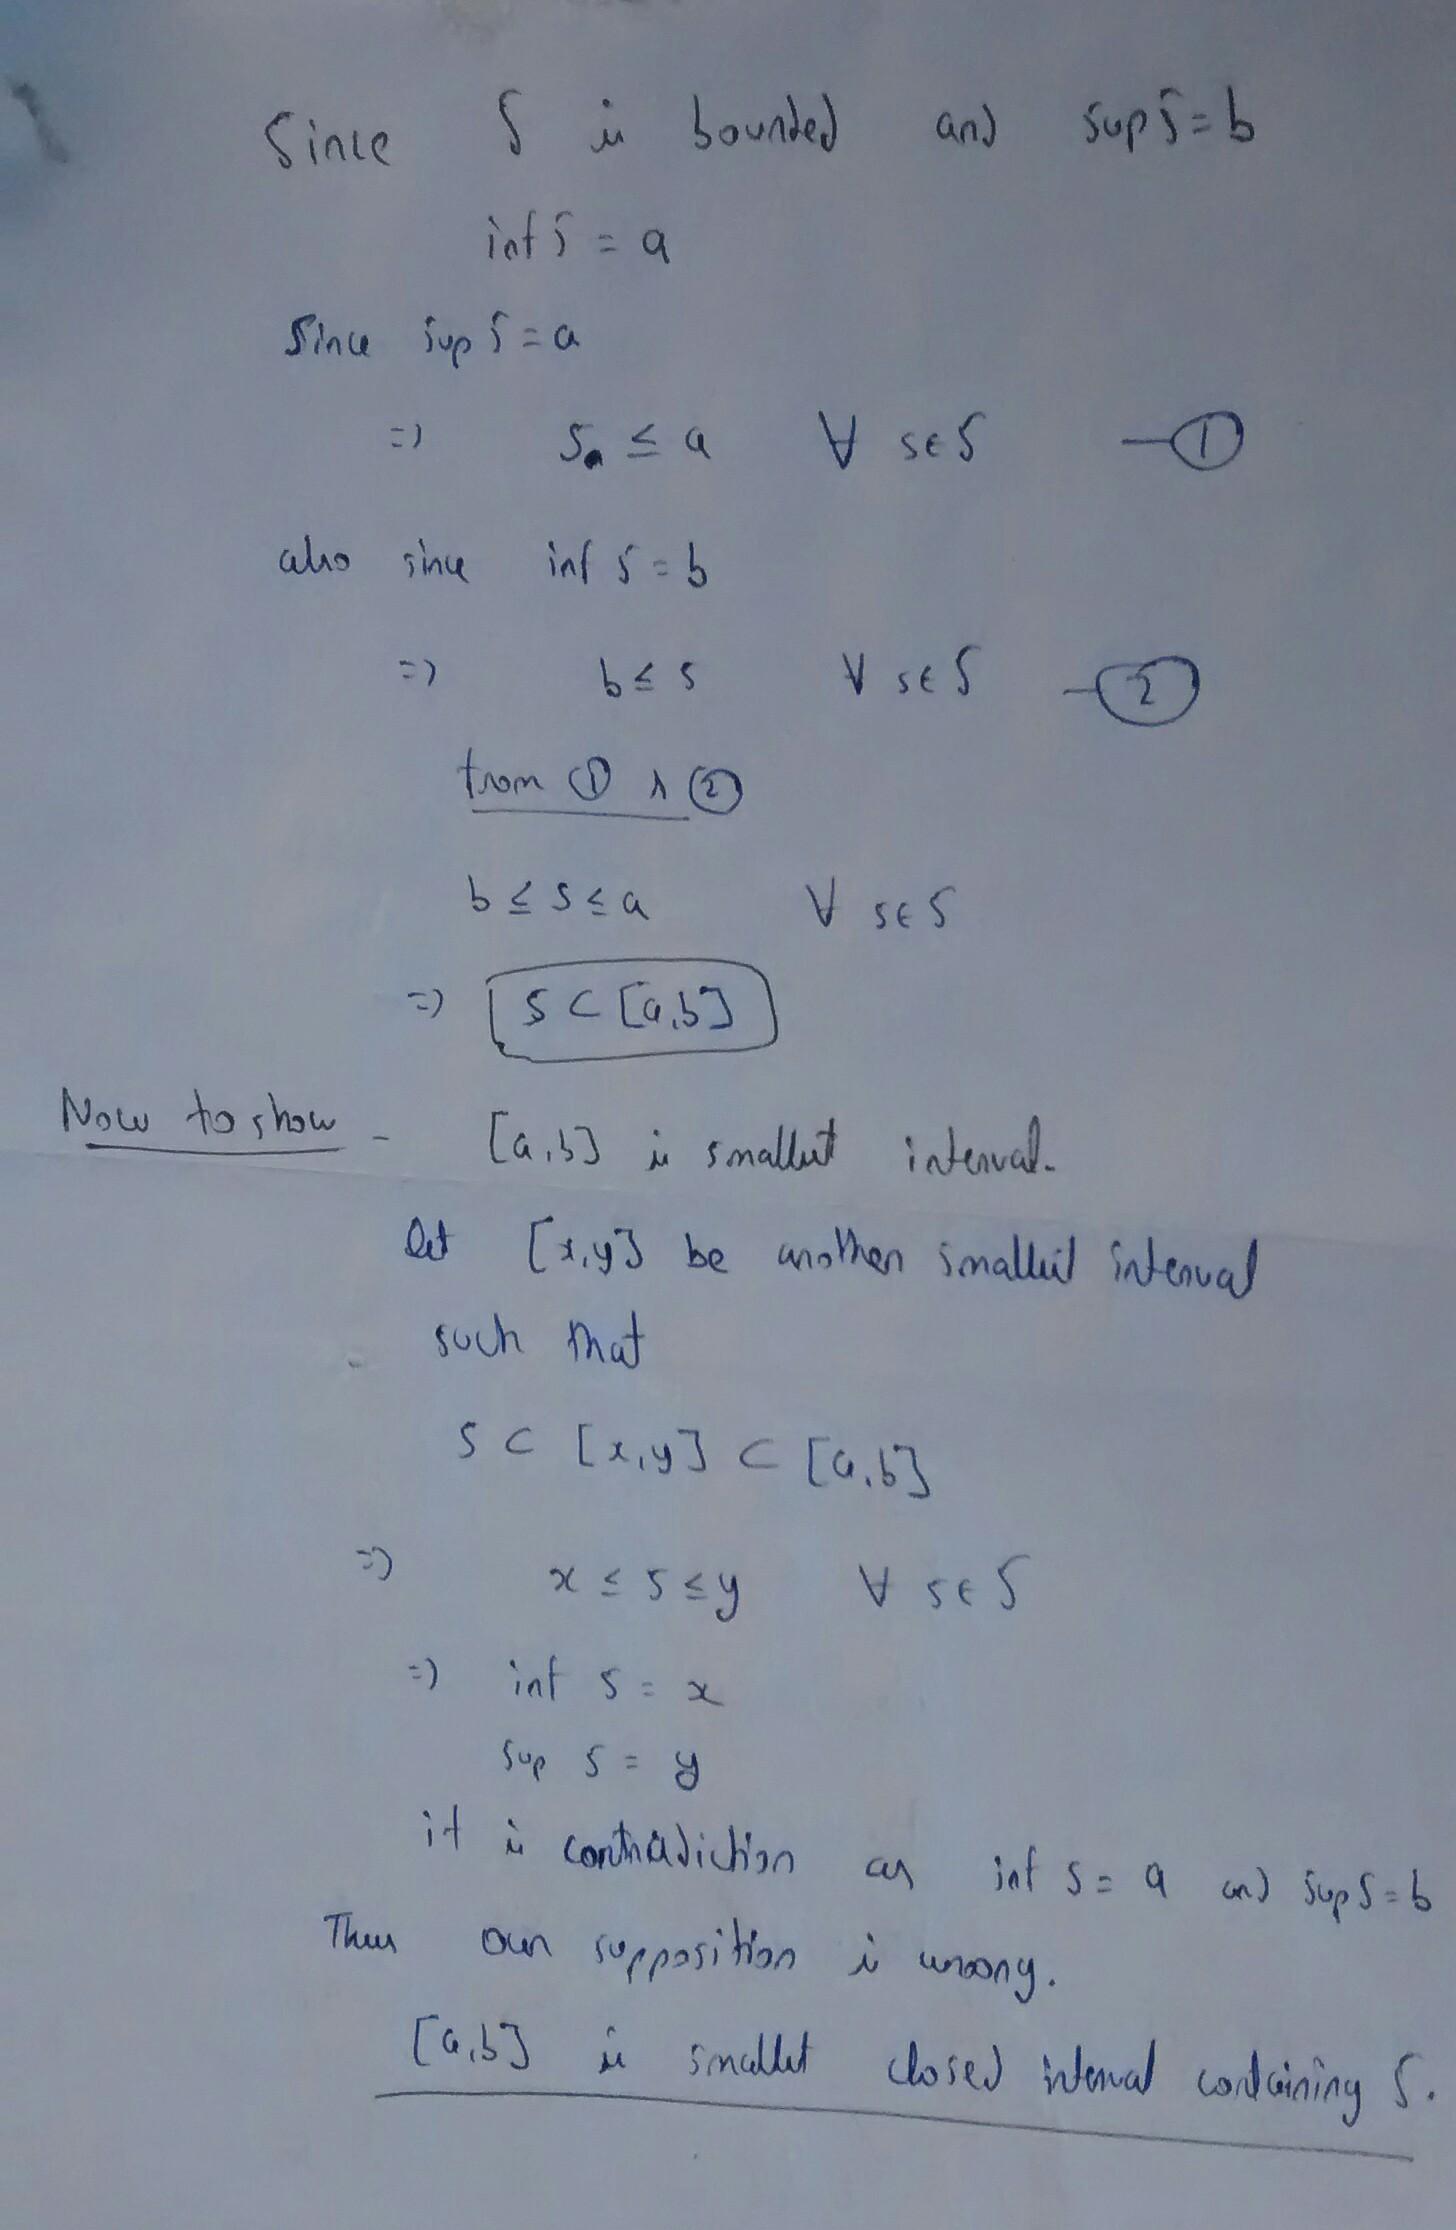 Since S is bounded and sup S = b
inf S = a
Since sup S = a
=> s ≤ a ∀ s∈S —①
also since inf S = b
=> b ≤ s ∀ s∈S —②
from ① & ②
b ≤ s ≤ a ∀ s∈S
=> S ⊂ [a,b]
Now to show - [a,b] is smallest interval.
let [x,y] be another smallest interval
such that
S ⊂ [x,y] ⊂ [a,b]
=> x ≤ s ≤ y ∀ s∈S
=> inf S = x
sup S = y
it is contradiction as inf S = a and sup S = b
Thus our supposition is wrong.
[a,b] is smallest closed interval containing S.